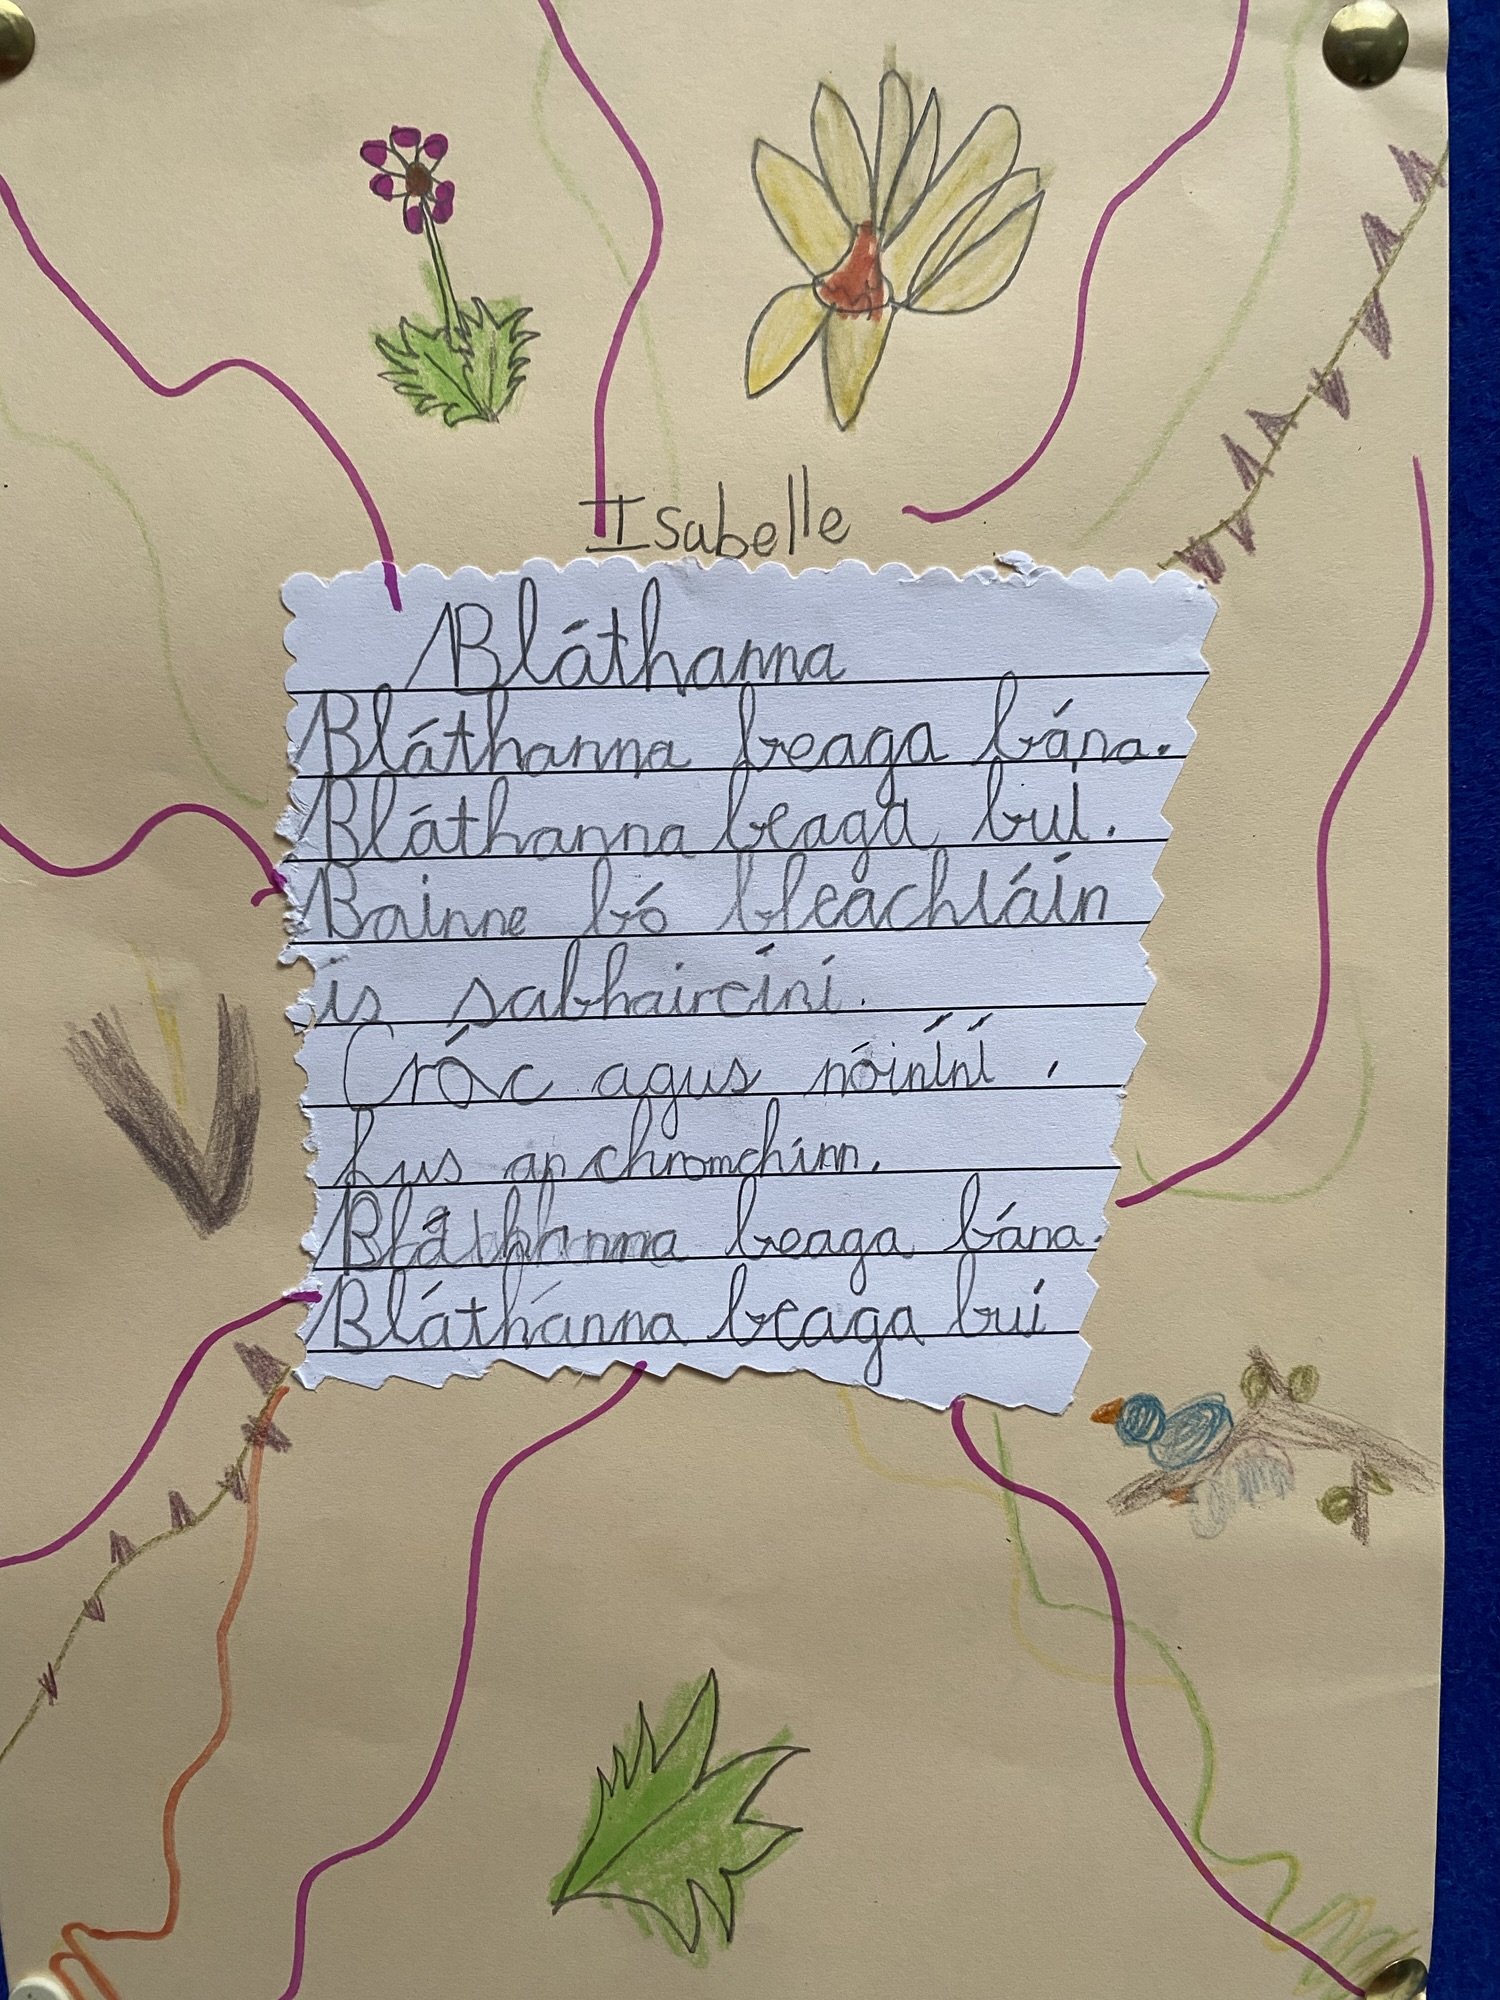 Isabelle
Bláthanna
Bláthanna beaga bána.
Bláthanna beaga buí.
Bainne bó bleachtáin
is sabhaircíní.
Cróc agus nóiníní,
Lus an chromchinn.
Bláthanna beaga bána.
Bláthanna beaga buí